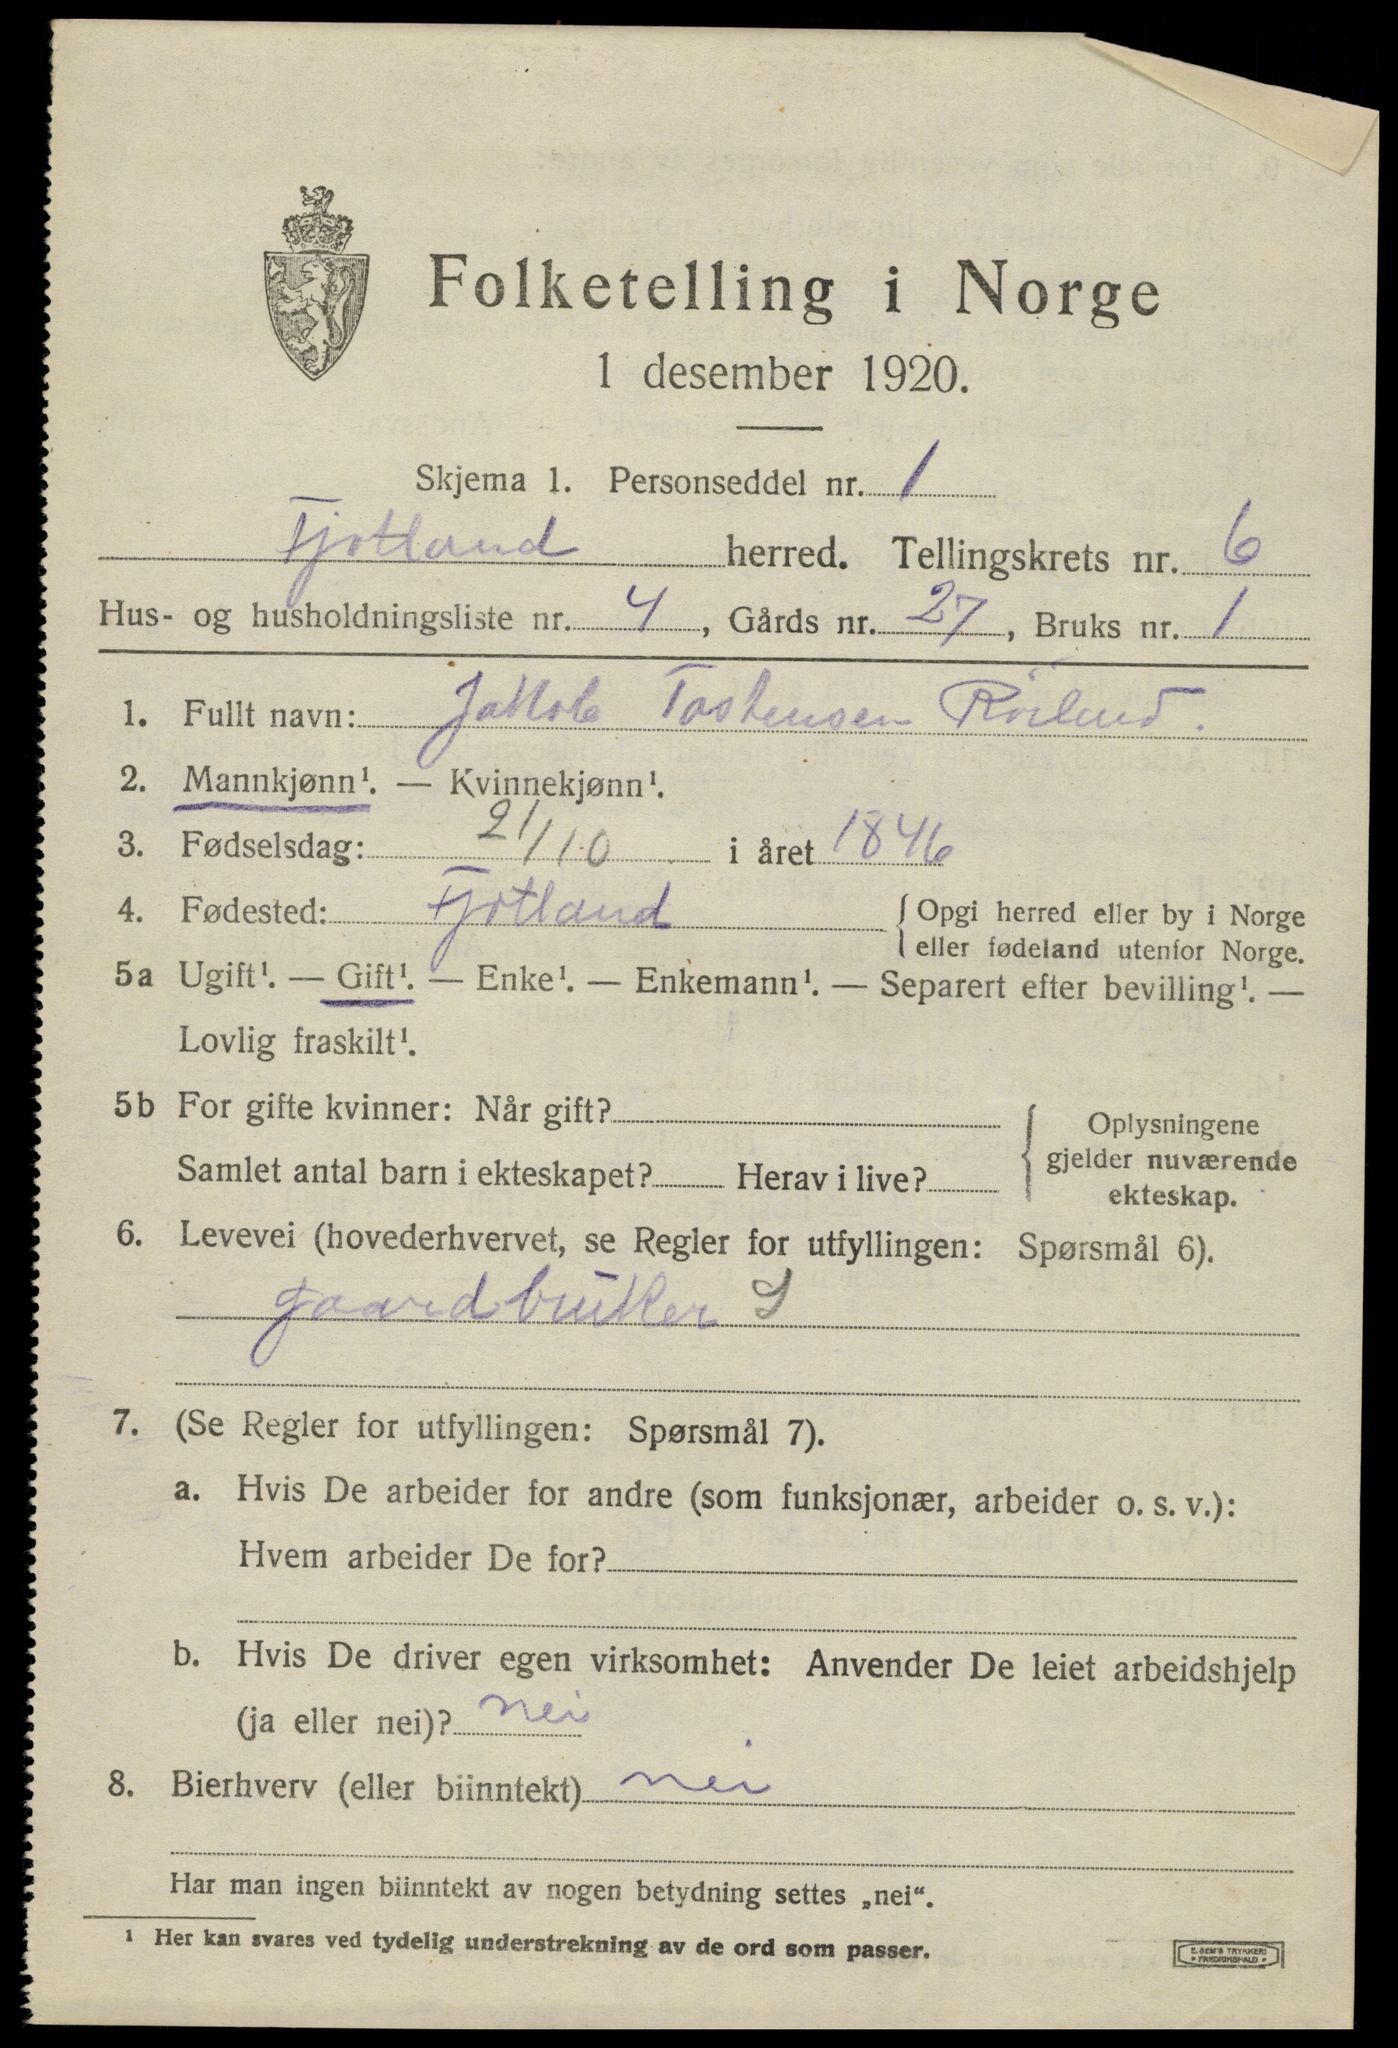 Folketelling i Norge
1 desember 1920.
Skjema 1. Personseddel nr. 1
Fjotland herred. Tellingskrets nr. 6
Hus- og husholdningsliste nr. 4, Gårds nr. 27, Bruks nr. 1
1. Fullt navn: Jakob Tostensen Röiland.
2. Mannkjønn¹. — Kvinnekjønn¹.
3. Fødselsdag: 21/10 i året 1846
4. Fødested: Fjotland { Opgi herred eller by i Norge
eller fødeland utenfor Norge.
5a Ugift¹. — Gift¹. — Enke¹. — Enkemann¹. — Separert efter bevilling¹. —
Lovlig fraskilt¹.
5b For gifte kvinner: Når gift?
Samlet antal barn i ekteskapet? Herav i live?
{ Oplysningene
gjelder nuværende
ekteskap.
6. Levevei (hovederhvervet, se Regler for utfyllingen: Spørsmål 6).
gaardbruker S
7. (Se Regler for utfyllingen: Spørsmål 7).
a. Hvis De arbeider for andre (som funksjonær, arbeider o. s. v.):
Hvem arbeider De for?
b. Hvis De driver egen virksomhet: Anvender De leiet arbeidshjelp
(ja eller nei)? nei
8. Bierhverv (eller biinntekt) nei
Har man ingen biinntekt av nogen betydning settes „nei“.
¹ Her kan svares ved tydelig understrekning av de ord som passer.
E. SEM'S TRYKKERI
FREDRIKSHALD